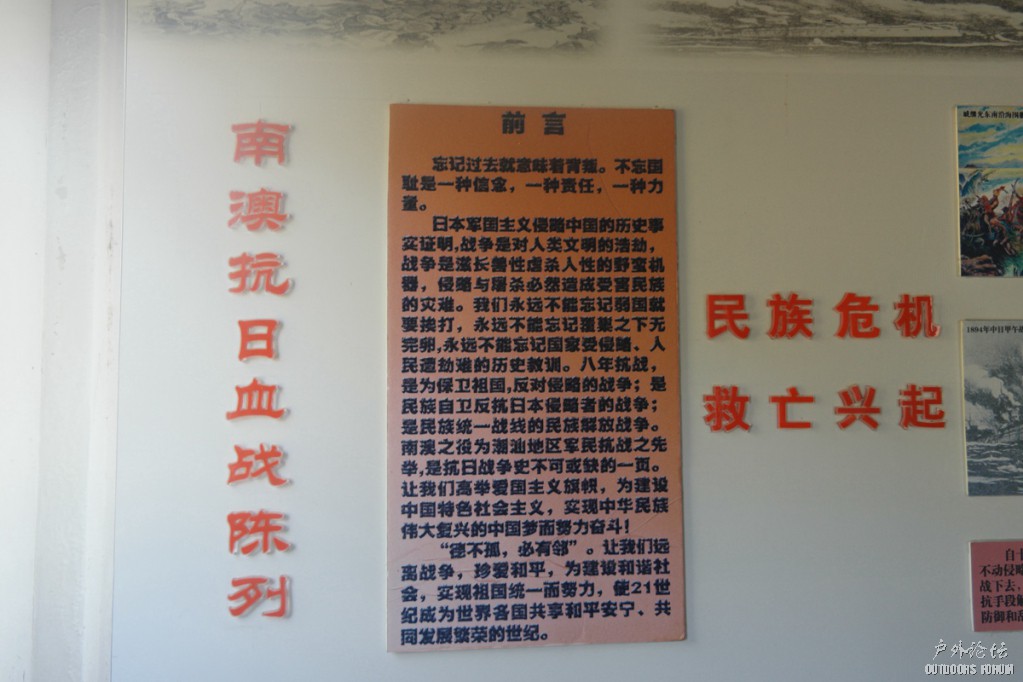 南澳抗日血战陈列
前言
忘记过去就意味着背叛。不忘国
耻是一种信念，一种责任，一种力
量。
日本军国主义侵略中国的历史事
实证明,战争是对人类文明的浩劫，
战争是滋长兽性虐杀人性的野蛮机
器，侵略与屠杀必然造成受害民族
的灾难。我们永远不能忘记弱国就
要挨打，永远不能忘记覆巢之下无
完卵,永远不能忘记国家受侵略、人
民遭劫难的历史教训。八年抗战，
是为保卫祖国,反对侵略的战争；是
民族自卫反抗日本侵略者的战争；
是民族统一战线的民族解放战争。
南澳之役为潮汕地区军民抗战之先
举,是抗日战争史不可或缺的一页。
让我们高举爱国主义旗帜，为建设
中国特色社会主义，实现中华民族
伟大复兴的中国梦而努力奋斗！
“德不孤，必有邻”。让我们远
离战争，珍爱和平，为建设和谐社
会，实现祖国统一而努力，使21世
纪成为世界各国共享和平安宁、共
同发展繁荣的世纪。
民族危机
救亡兴起
戚继光东南沿海围
1894年中日甲午战
自
不动侵略
战下去，
抗手段
防御和
户外论坛
OUTDOORS FORUM